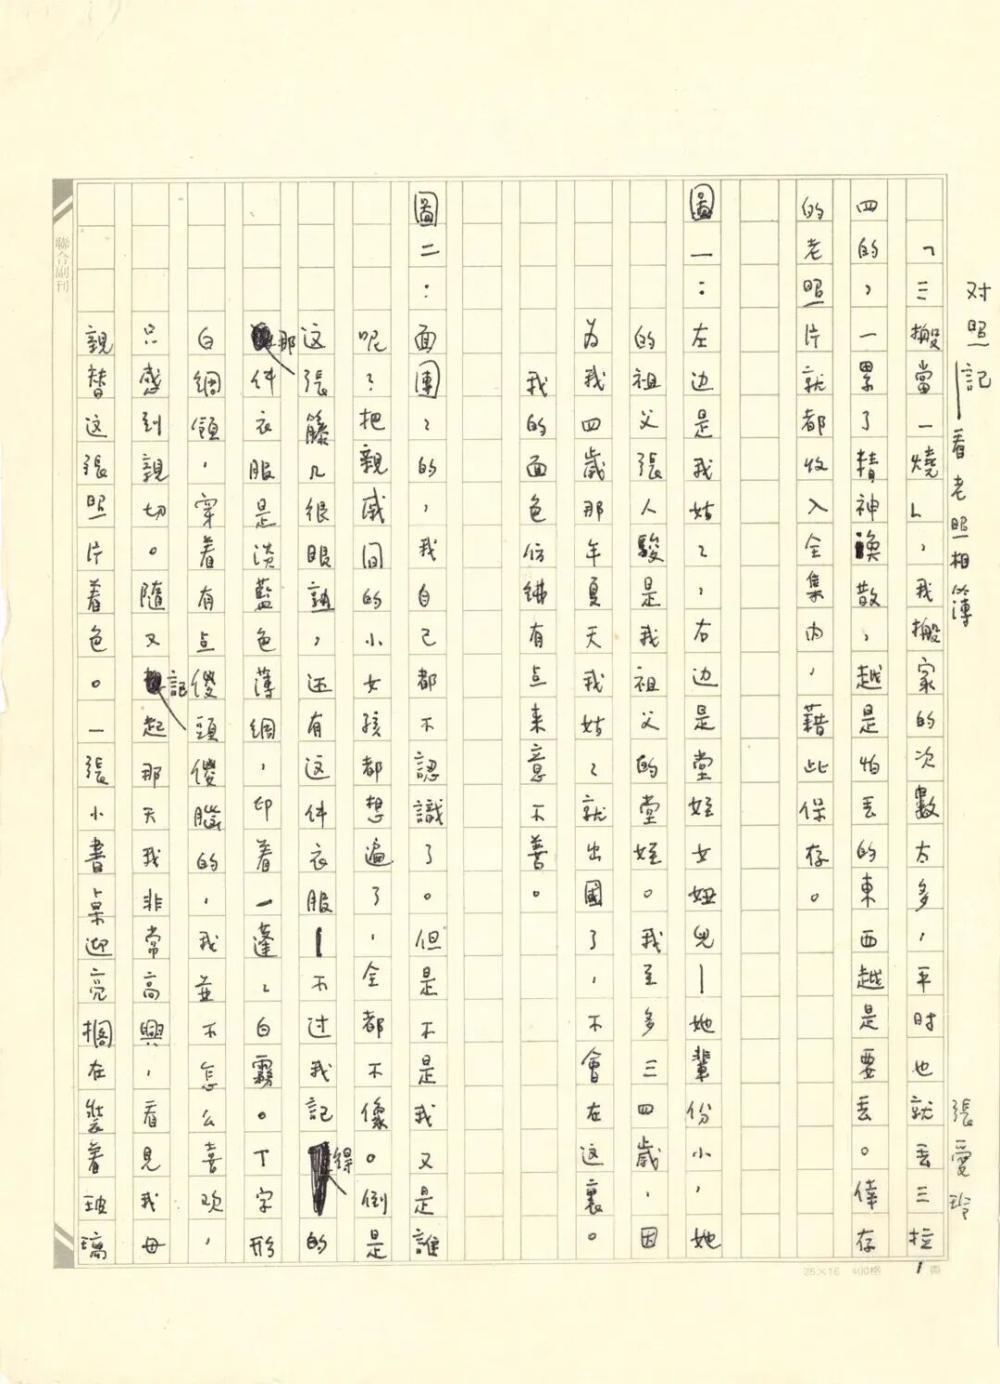 对照記—看老照相簿
張愛玲
「三搬當一燒」，我搬家的次數太多，平时也就丟三拉
四的，一累了精神渙散，越是怕丟的東西越是要丟。倖存
的老照片就都收入全集内，藉此保存。
圖一：左边是我姑〻，右边是堂姪女妞兒—她輩份小，她
的祖父張人駿是我祖父的堂姪。我至多三四歲，因
为我四歲那年夏天我姑〻就出國了，不會在這裏。
我的面色仿彿有点来意不善。
圖二：面團〻的，我自己都不認識了。但是不是我又是誰
呢？把親戚间的小女孩都想遍了，全都不像。倒是
这張籐几很眼熟，还有这件衣服—不过我記得的
那件衣服是淡藍色薄綢，印着一蓬〻白霧。T字形
白綢領，穿着有点傻頭傻腦的，我並不怎么喜欢，
只感到親切。隨又記起那天我非常高興，看見我母
親替这張照片着色。一張小書桌迎亮擱在裝着玻璃
聯合副刊
25×16 400格
1 頁